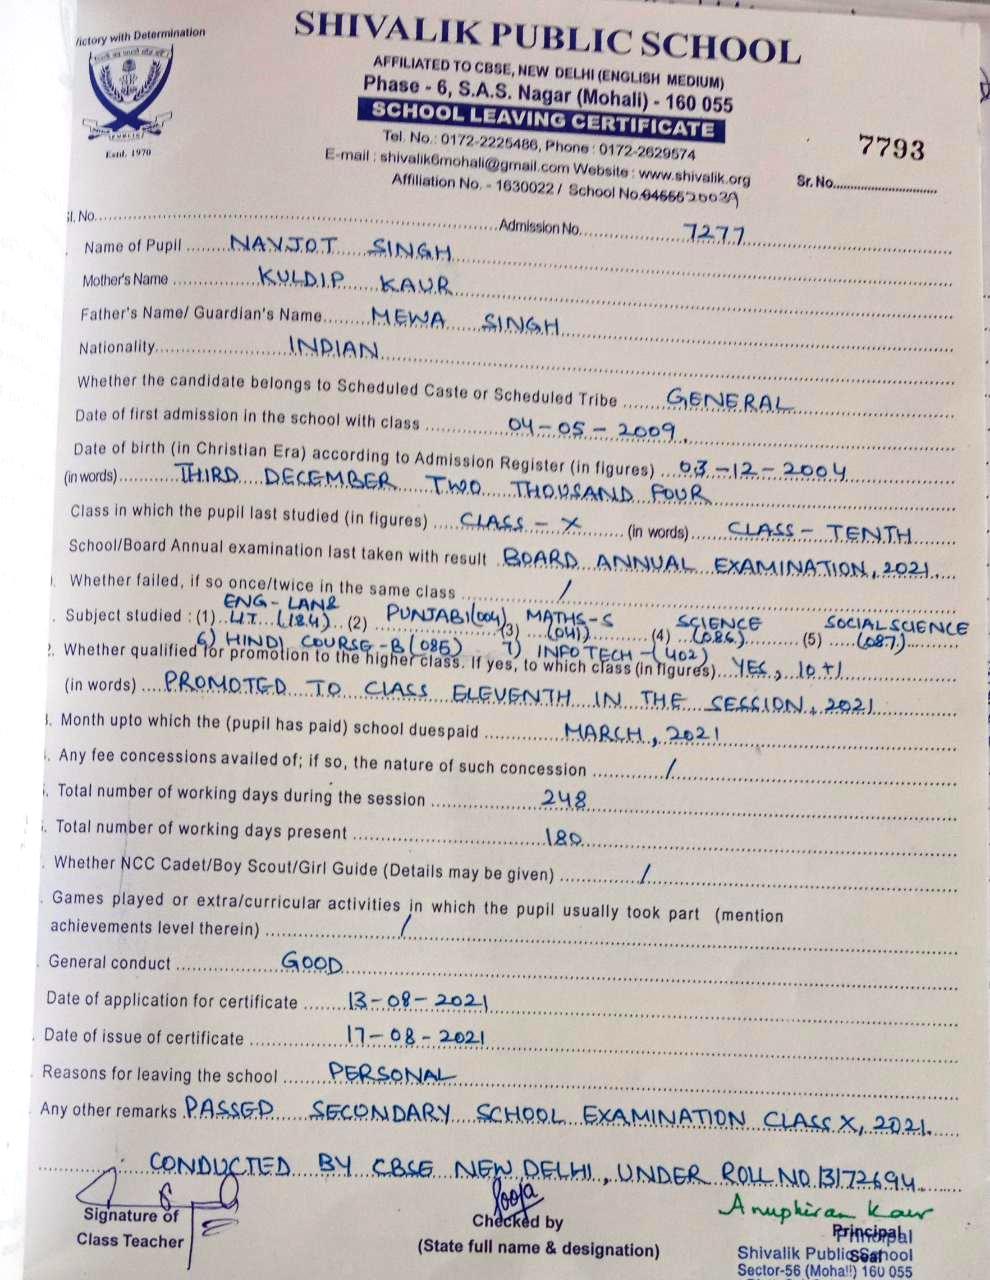 Victory with Determination
SHIVALIK PUBLIC SCHOOL
AFFILIATED TO CBSE, NEW DELHI (ENGLISH MEDIUM)
Phase - 6, S.A.S. Nagar (Mohali) - 160 055
SCHOOL LEAVING CERTIFICATE
PUBLIC
Estd. 1970
Tel. No.: 0172-2225486, Phone : 0172-2629574
7793
E-mail : shivalik6mohali@gmail.com Website : www.shivalik.org
Sr. No.
Affiliation No. - 1630022 / School No.
Sl. No. Admission No. 7277
Name of Pupil NAVJOT SINGH
Mother's Name KULDIP KAUR
Father's Name/ Guardian's Name MEWA SINGH
Nationality INDIAN
Whether the candidate belongs to Scheduled Caste or Scheduled Tribe GENERAL
Date of first admission in the school with class 04-05-2009.
Date of birth (in Christian Era) according to Admission Register (in figures) 03-12-2004
(in words) THIRD DECEMBER TWO THOUSAND FOUR
Class in which the pupil last studied (in figures) CLASS-X (in words) CLASS-TENTH
School/Board Annual examination last taken with result BOARD ANNUAL EXAMINATION, 2021.
Whether failed, if so once/twice in the same class /
Subject studied : (1) ENG-LANG & LIT (184) (2) PUNJABI(004) (3) MATHS-S (041) (4) SCIENCE (086) (5) SOCIAL SCIENCE (087)
6) HINDI COURSE-B(085) 7) INFO TECH-(402)
2. Whether qualified for promotion to the higher class. If yes, to which class (in figures) YES, 10+1
(in words) PROMOTED TO CLASS ELEVENTH IN THE SESSION, 2021
Month upto which the (pupil has paid) school duespaid MARCH, 2021
Any fee concessions availed of; if so, the nature of such concession /
Total number of working days during the session 248
Total number of working days present 180
Whether NCC Cadet/Boy Scout/Girl Guide (Details may be given) /
Games played or extra/curricular activities in which the pupil usually took part (mention
achievements level therein) /
General conduct GOOD
Date of application for certificate 13-08-2021
Date of issue of certificate 17-08-2021
Reasons for leaving the school PERSONAL
Any other remarks PASSED SECONDARY SCHOOL EXAMINATION CLASS X, 2021.
CONDUCTED BY CBSE NEW DELHI, UNDER ROLL NO 13172694.
Signature of
Class Teacher
Pooja
Checked by
(State full name & designation)
Anuphiran Kaur
Principal
Principal
Seal
Shivalik Public School
Sector-56 (Mohali) 160 055